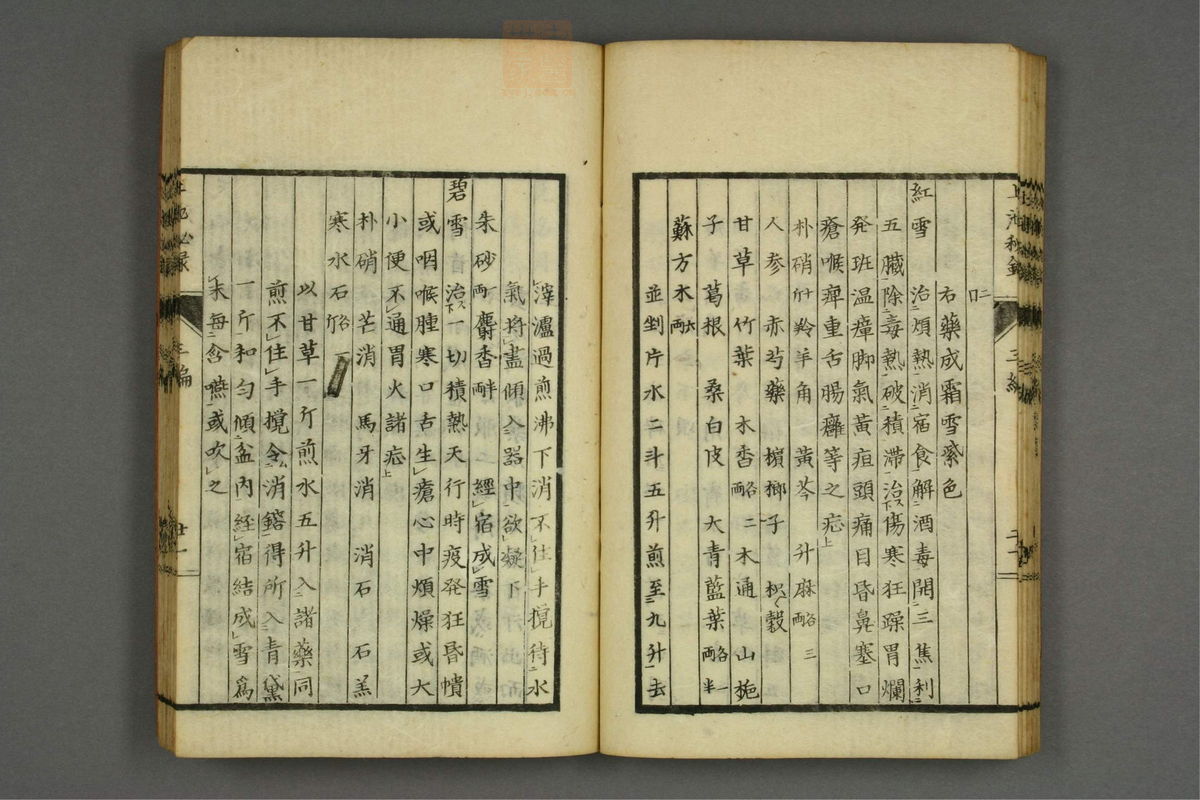 口
右藥成霜雪紫色
紅雪治煩熱消宿食解酒毒開三焦利
五臟除毒熱破積滯治傷寒狂躁胃爛
発班温瘴脚氣黃疸頭痛目昏鼻塞口
瘡喉痺重舌腸癰等之症
朴硝斤羚羊角 黃芩 升麻各三兩
人参赤芍藥 檳榔子 枳殼
甘草竹葉 木香各二兩木通 山梔
子 葛根 桑白皮 大青藍葉各一兩半
蘇方木六兩
並剉片水二斗五升煎至九升去
滓濾過煎沸下消不住手攪待水
氣將盡傾入器中欲凝下
朱砂一兩麝香半兩 經宿成雪
碧雪治一切積熱天行時疫発狂昏憒
或咽喉腫寒口舌生瘡心中煩燥或大
小便不通胃火諸症
朴硝 芒消 馬牙消 消石 石羔
寒水石各斤
以甘草一斤煎水五升入諸藥同
煎不住手攪令消鎔得所入青黛
一斤和匀傾盆內経宿結成雪爲
末每含嚥或吹之
三編
廿一